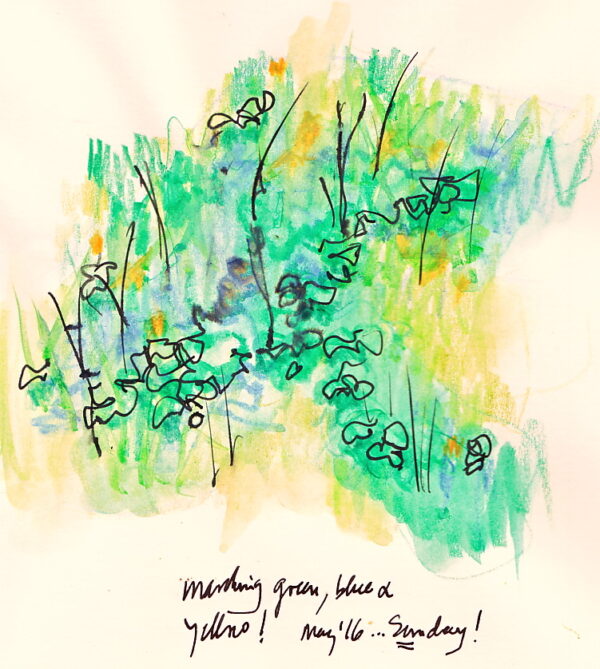 marching green, blue &
yellow! May '16... Sunday!